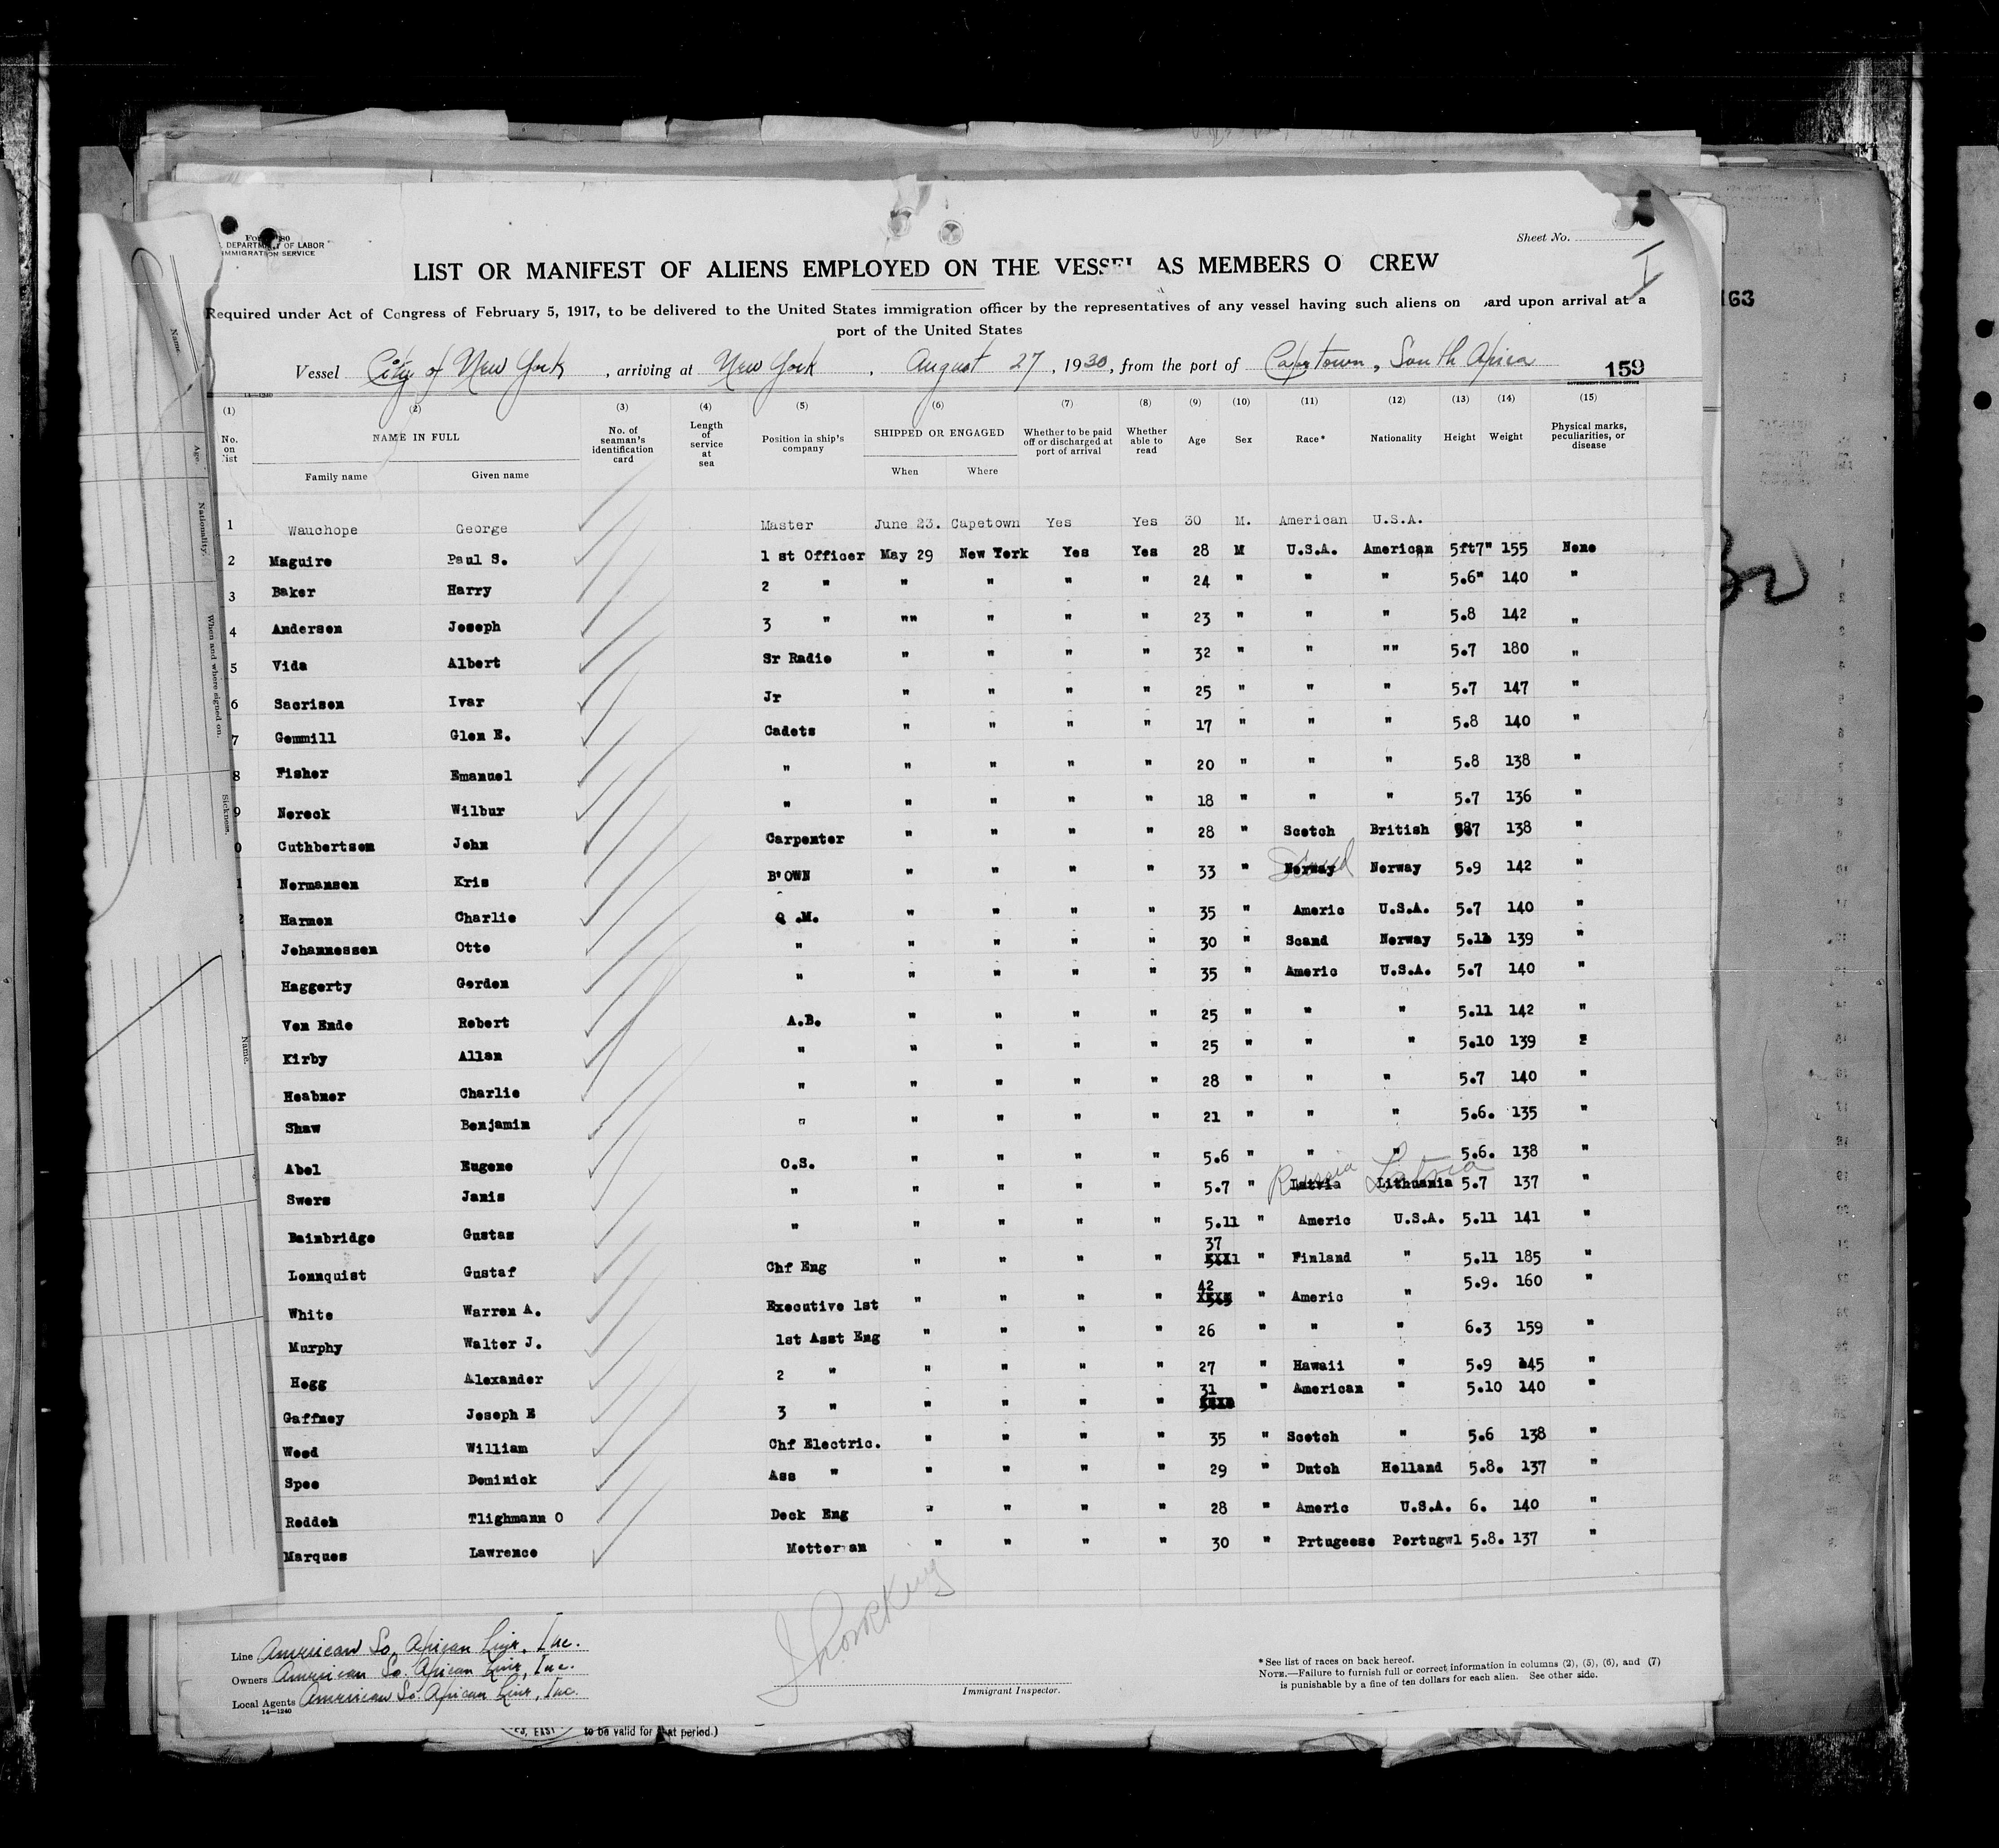 DEPARTMENT OF LABOR
IMMIGRATION SERVICE
Sheet No.
LIST OR MANIFEST OF ALIENS EMPLOYED ON THE VESSEL AS MEMBERS O CREW
Required under Act of Congress of February 5, 1917, to be delivered to the United States immigration officer by the representatives of any vessel having such aliens on ard upon arrival at a
port of the United States
163
Vessel City of New York, arriving at New York, August 27, 1930, from the port of Capetown, South Africa 159
(1) (2) (3) (4) (5) (6) (7) (8) (9) (10) (11) (12) (13) (14) (15)
No. on list NAME IN FULL Family name Given name No. of seaman's identification card Length of service at sea Position in ship's company SHIPPED OR ENGAGED When Where Whether to be paid off or discharged at port of arrival Whether able to read Age Sex Race* Nationality Height Weight Physical marks, peculiarities, or disease
1 Wauchope George Master June 23. Capetown Yes Yes 30 M. American U.S.A.
2 Maguire Paul S. 1 st Officer May 29 New York Yes Yes 28 M U.S.A. American 5ft7" 155 None
3 Baker Harry 2 " " " " " 24 " " " 5.6" 140 "
4 Andersen Joseph 3 " "" " " " 23 " " " 5.8 142 "
5 Vida Albert Sr Radio " " " " 32 " " "" 5.7 180 "
6 Sacrison Ivar Jr " " " " 25 " " " 5.7 147 "
7 Gemmill Glen E. Cadets " " " " 17 " " " 5.8 140 "
8 Fisher Emanuel " " " " " 20 " " " 5.8 138 "
Nereck Wilbur " " " " " 18 " " " 5.7 136 "
Cuthbertson John Carpenter " " " " 28 " Scotch British 138 "
Normansen Kris B'OWN " " " " 33 " Norway Scand Norway 5.9 142 "
Harmon Charlie Q .M. " " " " 35 " Americ U.S.A. 5.7 140 "
Johannessen Otto " " " " " 30 " Scand Norway 139 "
Haggerty Gordon " " " " " 35 " Americ U.S.A. 5.7 140 "
Von Ende Robert A.B. " " " " 25 " " " 5.11 142 "
Kirby Allan " " " " " 25 " " " 5.10 139
Heabner Charlie " " " " " 28 " " " 5.7 140 "
Shaw Benjamin " " " " " 21 " " " 5.6. 135 "
Abel Eugene O.S. " " " " 5.6 " " " 5.6. 138 "
Swers Janis " " " " " 5.7 " Latvia Russia Lithuania Latvia 5.7 137 "
Bainbridge Gustas " " " " " 5.11 " Americ U.S.A. 5.11 141 "
Lennquist Gustaf Chf Eng " " " " 37 " Finland " 5.11 185 "
White Warren A. Executive 1st " " " " 42 " Americ " 5.9. 160 "
Murphy Walter J. 1st Asst Eng " " " " 26 " " " 6.3 159 "
Hogg Alexander 2 " " " " " 27 " Hawaii " 5.9 145 "
Gaffney Joseph E 3 " " " " " 31 " American " 5.10 140 "
Wood William Chf Electric. " " " " 35 " Scotch " 5.6 138 "
Spee Dominick Ass " " " " " 29 " Dutch Holland 5.8. 137 "
Redden Tlighmann O Deck Eng " " " " 28 " Americ U.S.A. 6. 140 "
Marques Lawrence Motter an " " " " 30 " Prtugeese Portugwl 5.8. 137 "
Name.
Age.
Nationality.
When and where signed on.
Sickness.
Name.
Line American So. African Line, Inc.
Owners American So. African Line, Inc.
Local Agents American So. African Line, Inc.
14—1240
Immigrant Inspector.
*See list of races on back hereof.
NOTE.—Failure to furnish full or correct information in columns (2), (5), (6), and (7)
is punishable by a fine of ten dollars for each alien. See other side.
to be valid for that period.)